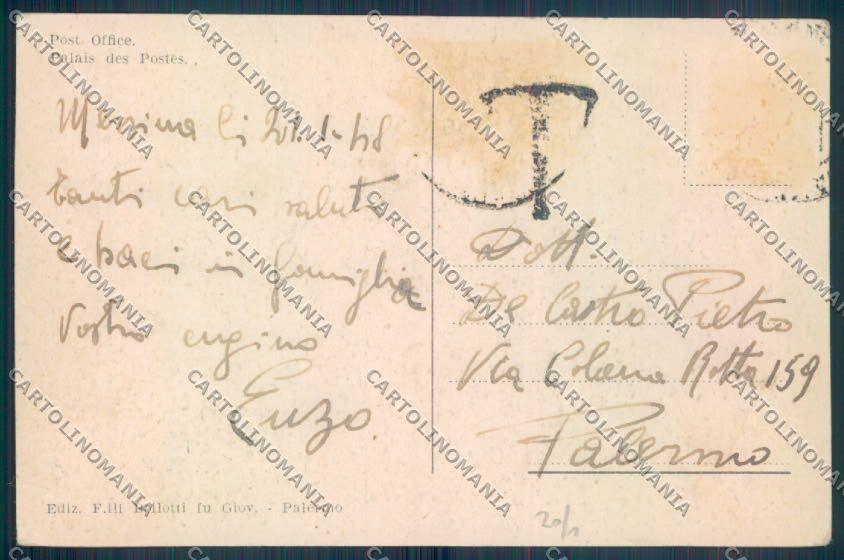 Post Office.
Palais des Postes.
Messina li 21.1-48
Tanti cari saluti
e baci in famiglia
Vostro cugino
Enzo.
T
Dott.
De Castro Pietro
Via Colonna Rotta 159
Palermo
Ediz. F.lli Bellotti fu Giov. - Palermo
20/1
CARTOLINOMANIA